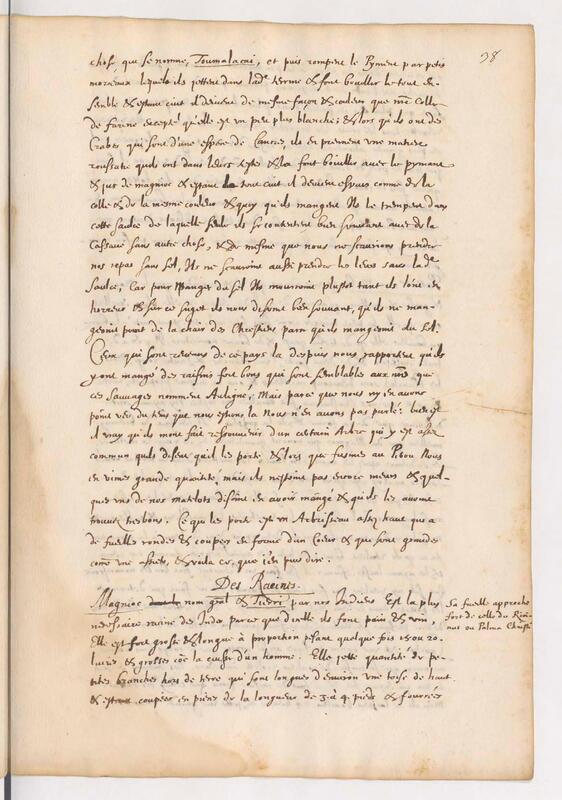 98
chose, que se nomme, Toumalacai, et puis rompent le Pyment par petis
morceaux lesquels ils jettent dans lad.e terrine & font bouillir le tout en-
semble & estant cuit il devient de mesme façon & couleur que nre Colle
de farine excepté qu'elle est un peu plus blanche; & lors qu'ils ont des
Crabes qui sont d'une espece de Cancres, ils en prennent une matiere
roussatre quils ont dans leurs testes & la font bouillir avec le pymant
& jus de magnioc & estant le tout cuit il devient espais comme de la
colle & de la mesme couleur & quoy qu'ils mangent Ils le trempent dans
cette saulce de laquelle seule ils se contentent bien souvant avec de la
Cassave sans autre chose, & de mesme que nous ne scaurions prendre
nos repas sans sel, Ils ne scauroient aussi prendre les leurs sans lad.e
saulce; Car pour Manger du sel Ils mourroient plustot tant ils l'ont en
horreur & sur ce suget ils nous disoient bien souvant, qu'ils ne man-
geoint point de la chair des Chrestiens parce qu'ils mangeoint du sel.
Ceux qui sont revenus de ce pays la despuis nous, rapportent qu'ils
y ont mangé des raisins fort bons qui sont semblables aux nres que
ces sauvages nomment Auligné, Mais parce que nous n'y en avons
point veu du tems que nous estions la Nous n'en avons pas parlé: bien est
il vray qu'ils m'ont fait ressouvenir d'un certain Arbre qui y est assez
commun quils disent qui les porte, & lors que fusmes au Perou Nous
en vismes grande quantité, mais ils n'estoint pas encore meurs & quel-
ques uns de nos matelots disoint en avoir mangé & qu'ils les avoint
trouvez tresbons. Ce qui les porte est un Arbrisseau assez haut qui a
de fueilles rondes & coupees en forme d'un Coeur & qui sont grandes
come une assiete, & voila ce, que j'en puis dire.
Des Racines.
Magnioc nom gnal & Tueri par nos Indiens Est la plus
necessaire racine des Indes parce que d'icelle ils font pain & vin,
Elle est fort grosse & longue à proportion pesant quelque fois 15 ou 20.
livres & grosses coe la cuisse d'un homme. Elle jette quantité de pe-
tites branches hors de terre qui sont longues d'environ une toise de haut
& coupées en pieces de la longueur de 3 à 4 pieds & fourrées
Sa fueille approche
fort de celle du Rici-
nus ou Palma Christi